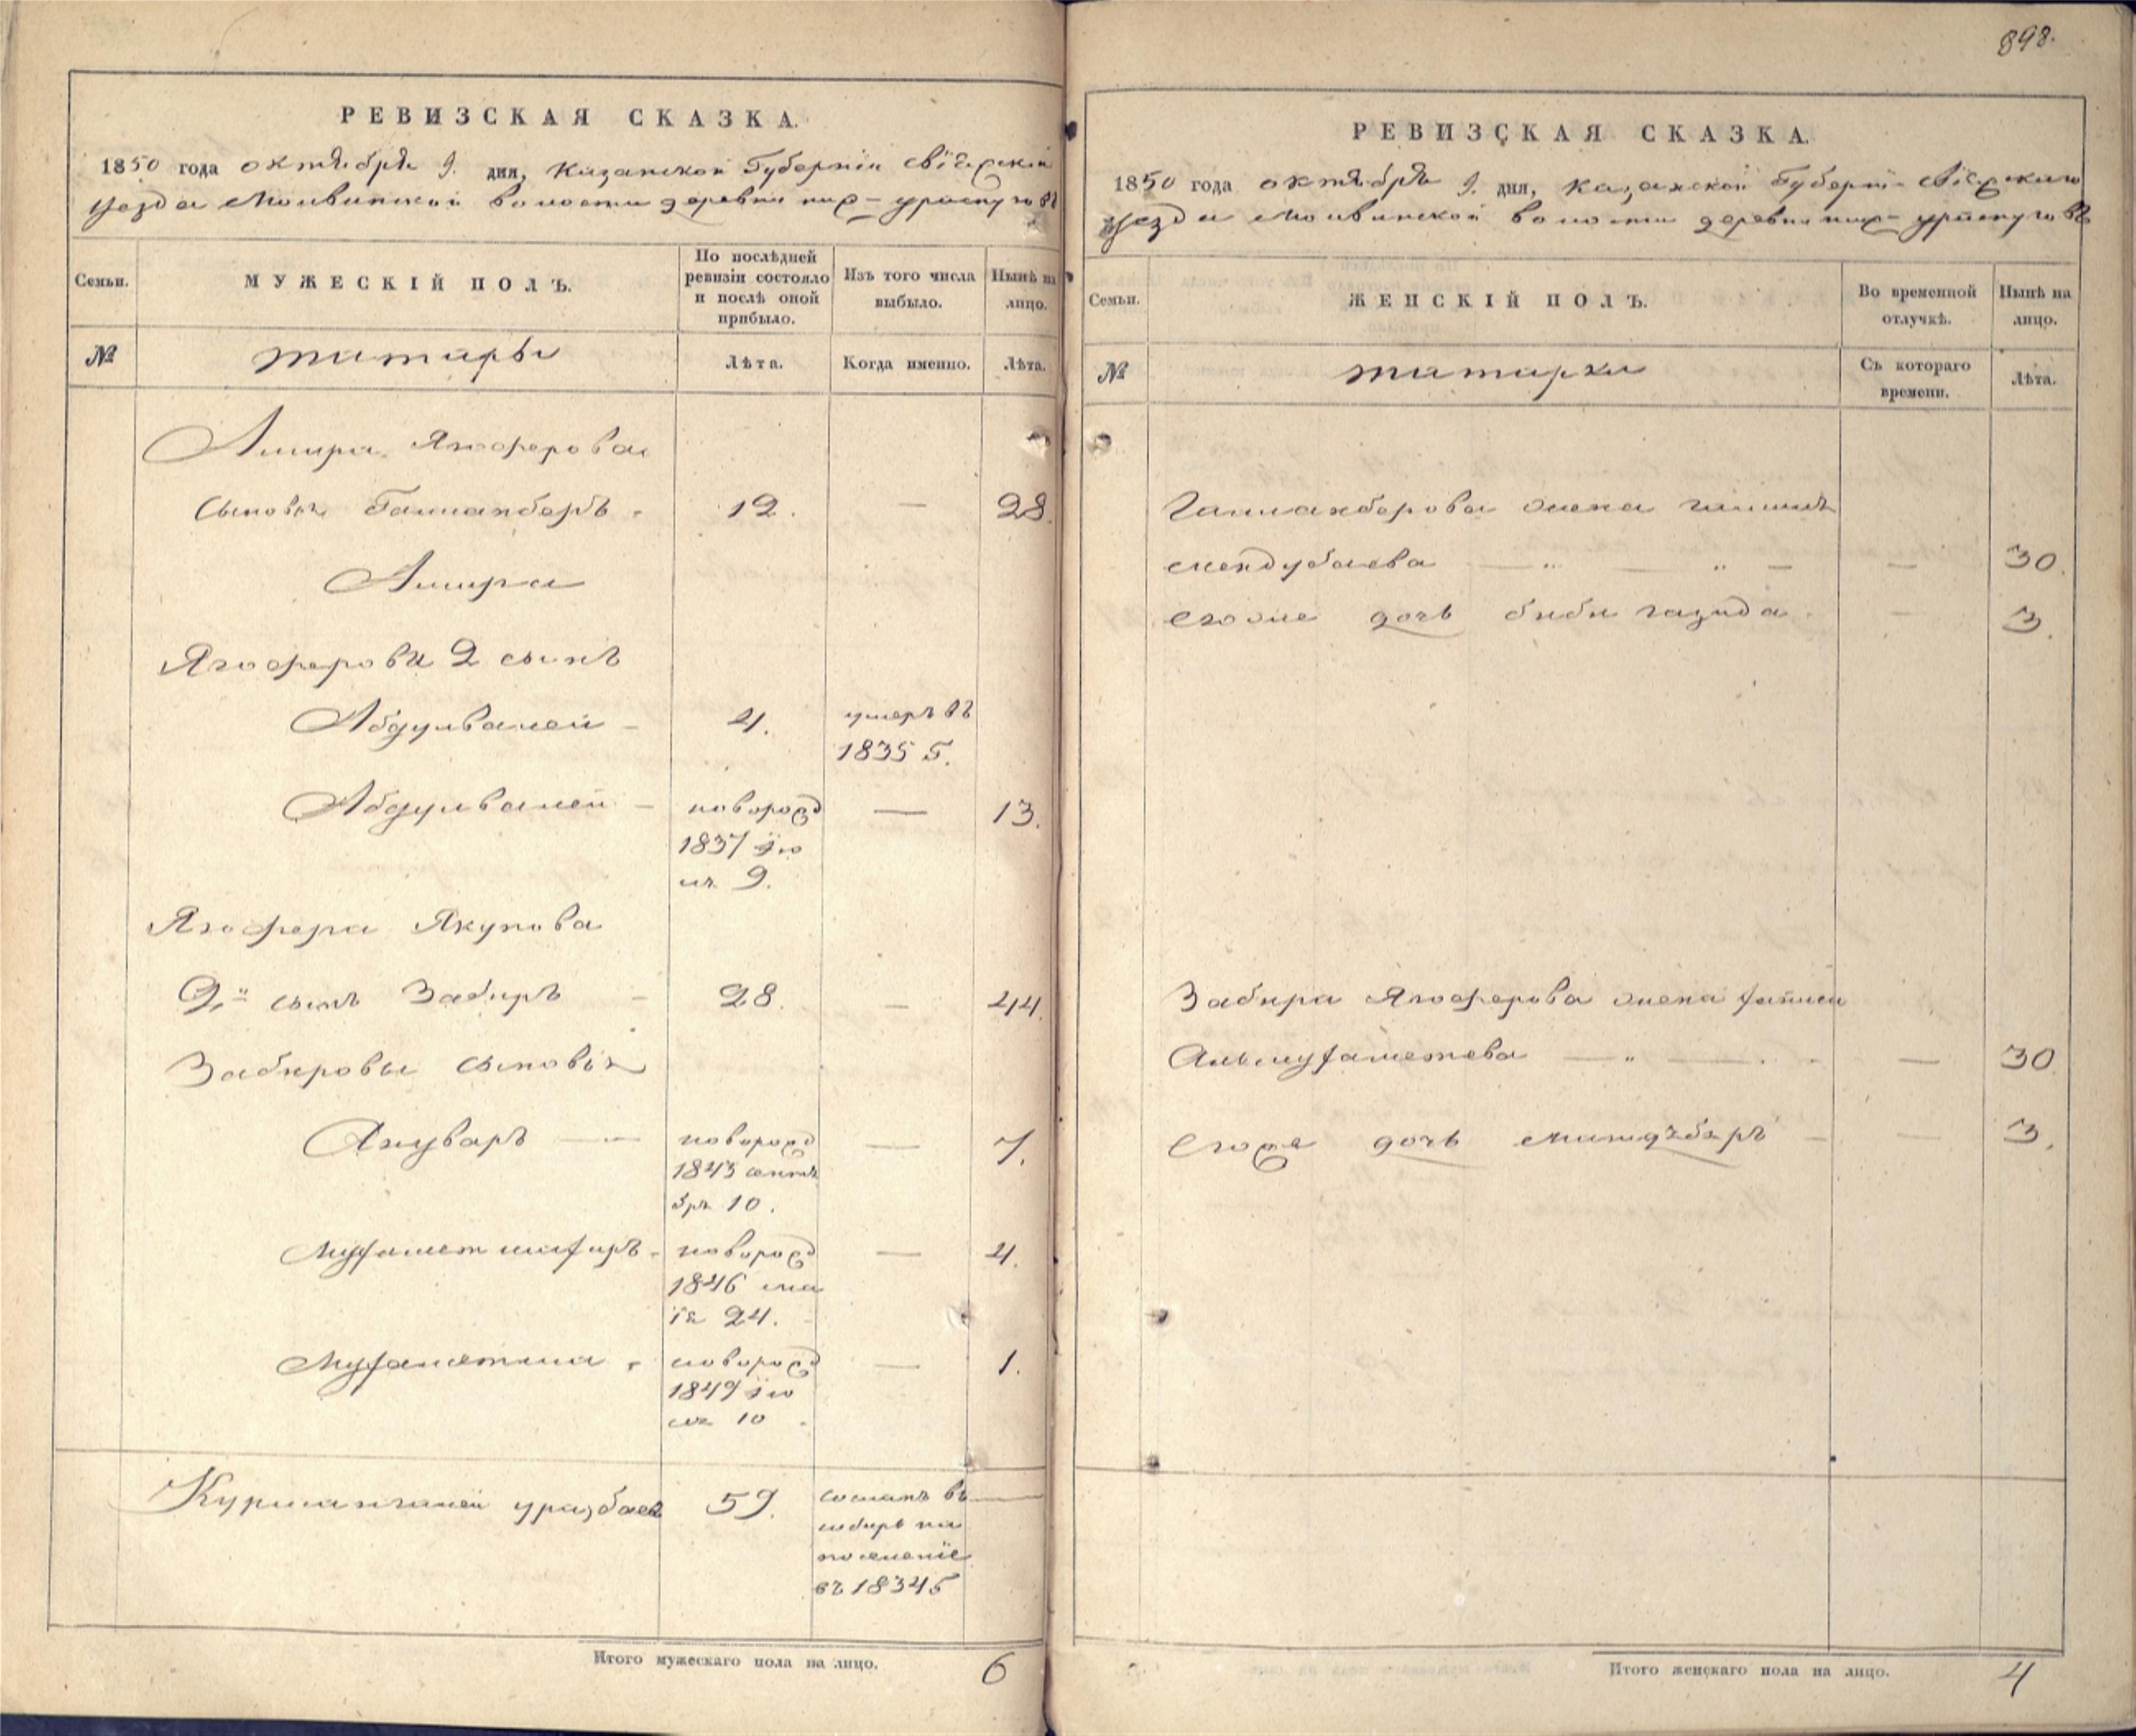 898.
РЕВИЗСКАЯ СКАЗКА.
1850 года октября 9. дня, Казанской Губернии Свіяжскаго
уезда Молвинской волости деревни
Семьи.
МУЖЕСКІЙ ПОЛЪ.
По послѣдней
ревизіи состояло
и послѣ оной
прибыло.
Изъ того числа
выбыло.
Нынѣ на
лицо.
№
татары
Лѣта.
Когда именно.
Лѣта.
Амира Ягоферова
сыновья Галиакберъ 12. — 28.
Амира
Ягоферова 2 сынъ
Абдулвалей — 4. умеръ въ
1835 г.
Абдулвалей — новорожд — 13.
1837 ію
ля 9.
Ягофера Якупова
2й сынъ Забиръ — 28. — 44.
Забировы сыновья
Ануваръ — новорожд — 7.
1843 сентя
бря 10.
новорожд — 4.
1846 ма
ія 24.
новорожд — 1.
1849 ію
ля 10
Курмангалей уразбаевъ 59. сосланъ въ —
сибирь на
поселеніе
въ 1834 г
Итого мужескаго пола на лицо. 6
РЕВИЗСКАЯ СКАЗКА.
1850 года октября 9. дня, Казанской Губерніи Свіяжскаго
уезда Молвинской волости деревни
Семьи.
ЖЕНСКІЙ ПОЛЪ.
Во временной
отлучкѣ.
Нынѣ на
лицо.
№
татарки
Съ котораго
времени.
Лѣта.
Галиакберова жена
мендубаева — " — " — — 30.
егоже дочь биби газида — 3.
Забира Ягоферова жена
Альмухаметева — " — — 30
егоже дочь — — 3.
Итого женскаго пола на лицо. 4